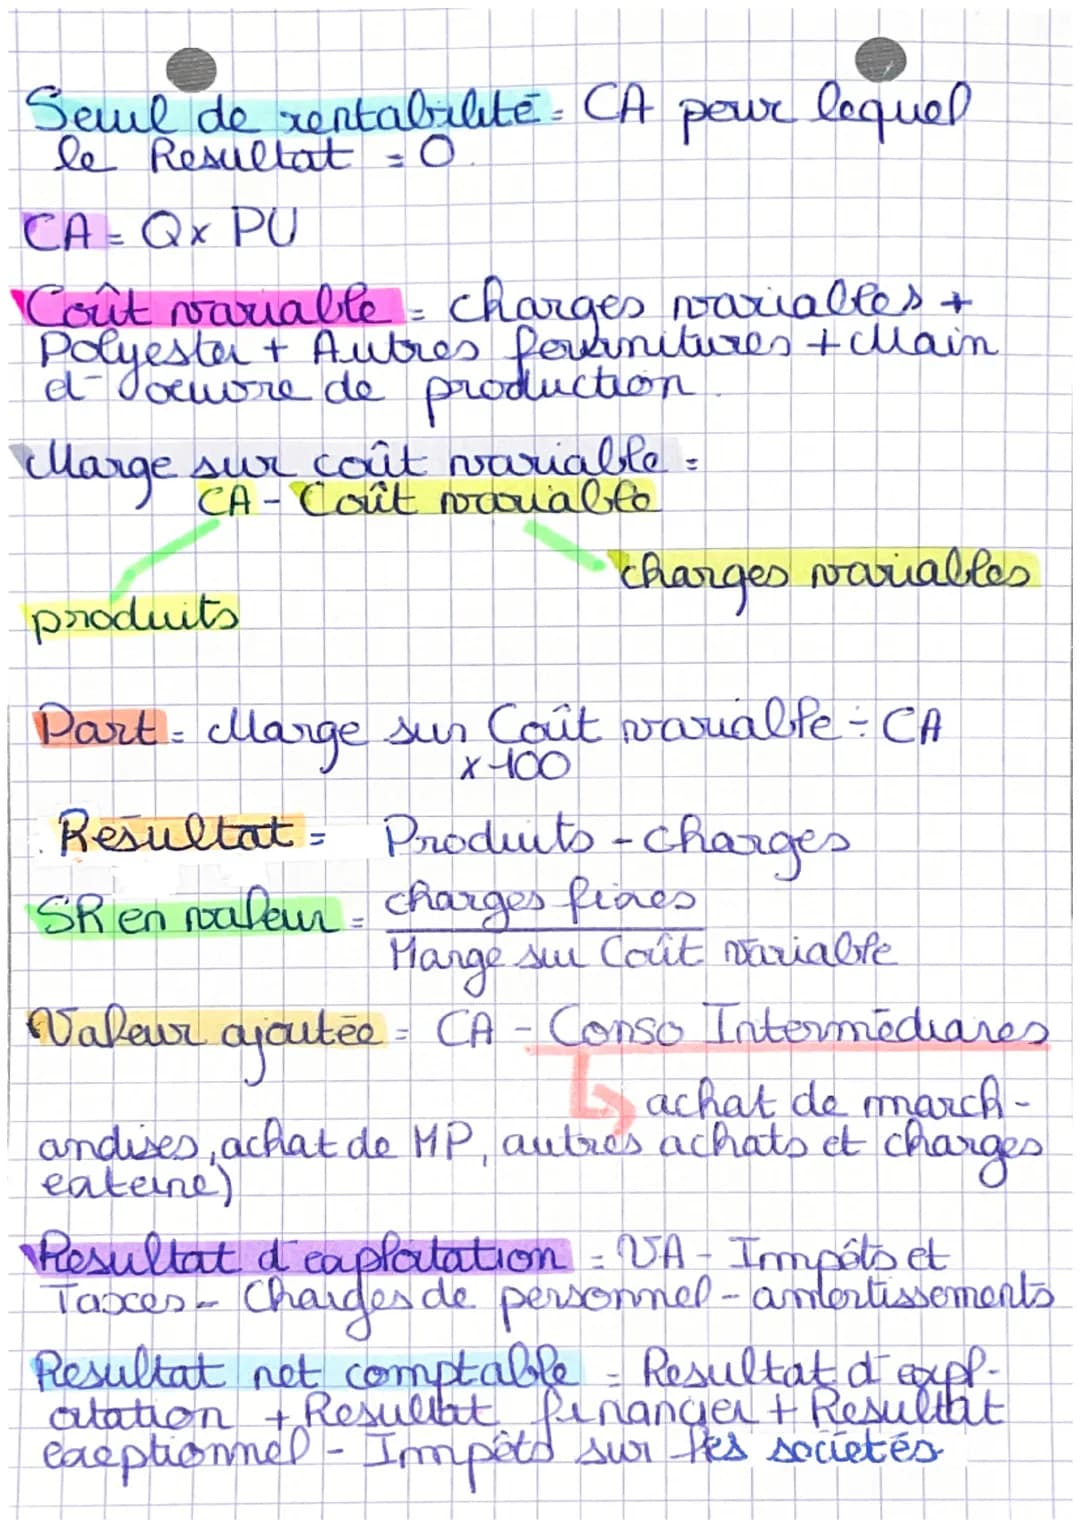 Seuil de rentabilité = CA pour lequel
le Resultat = 0.
CA = Q x PU
Coût variable = charges variables +
Polyester + Autres fournitures + Main
d'oeuvre de production.
Marge sur coût variable =
CA - Coût variable
charges variables
produits
Part = Marge sur Coût variable ÷ CA
x 100
Resultat = Produits - charges
SR en valeur = charges fixes
Marge sur Coût variable
Valeur ajoutée = CA - Conso Intermédiares
achat de march-
andises, achat de MP, autres achats et charges
exteine)
Resultat d'exploitation = VA - Impôts et
Taxes - Charges de personnel - amortissements
Resultat net comptable = Resultat d'expl-
oitation + Resultat financier + Resultat
exceptionnel - Impôts sur les societés